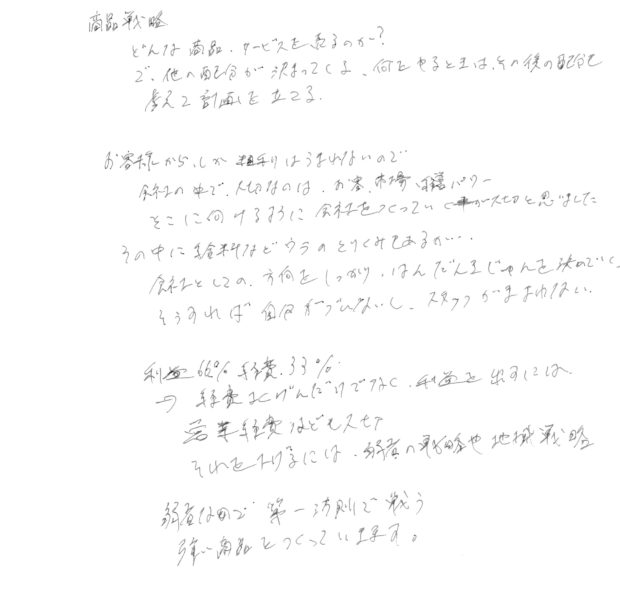 商品戦略
どんな商品、サービスを売るのか?
で、他の配分が決まってくる、何をやるときは、その後の配分も
考えて計画を立てる。
お客様からしか 粗利はうまれないので
会社の中で、大切なのは、お客、市場、パワー
そこに向けるように会社をつくっていくが大切と思いました
その中に給料などウラのとりくみであるが…
会社としての、方向をしっかり、はんだんきじゅんを決めていく、
そうすれば自分がブレないし、スタッフがまよわない。
利益66% 経費33%
→ 経費さくげんだけでなく、利益を出すには、
営業経費なども大切
それを下げるには、弱者の戦略や地域戦略
弱者なので第一法則で戦う
強い商品をつくっていきます。